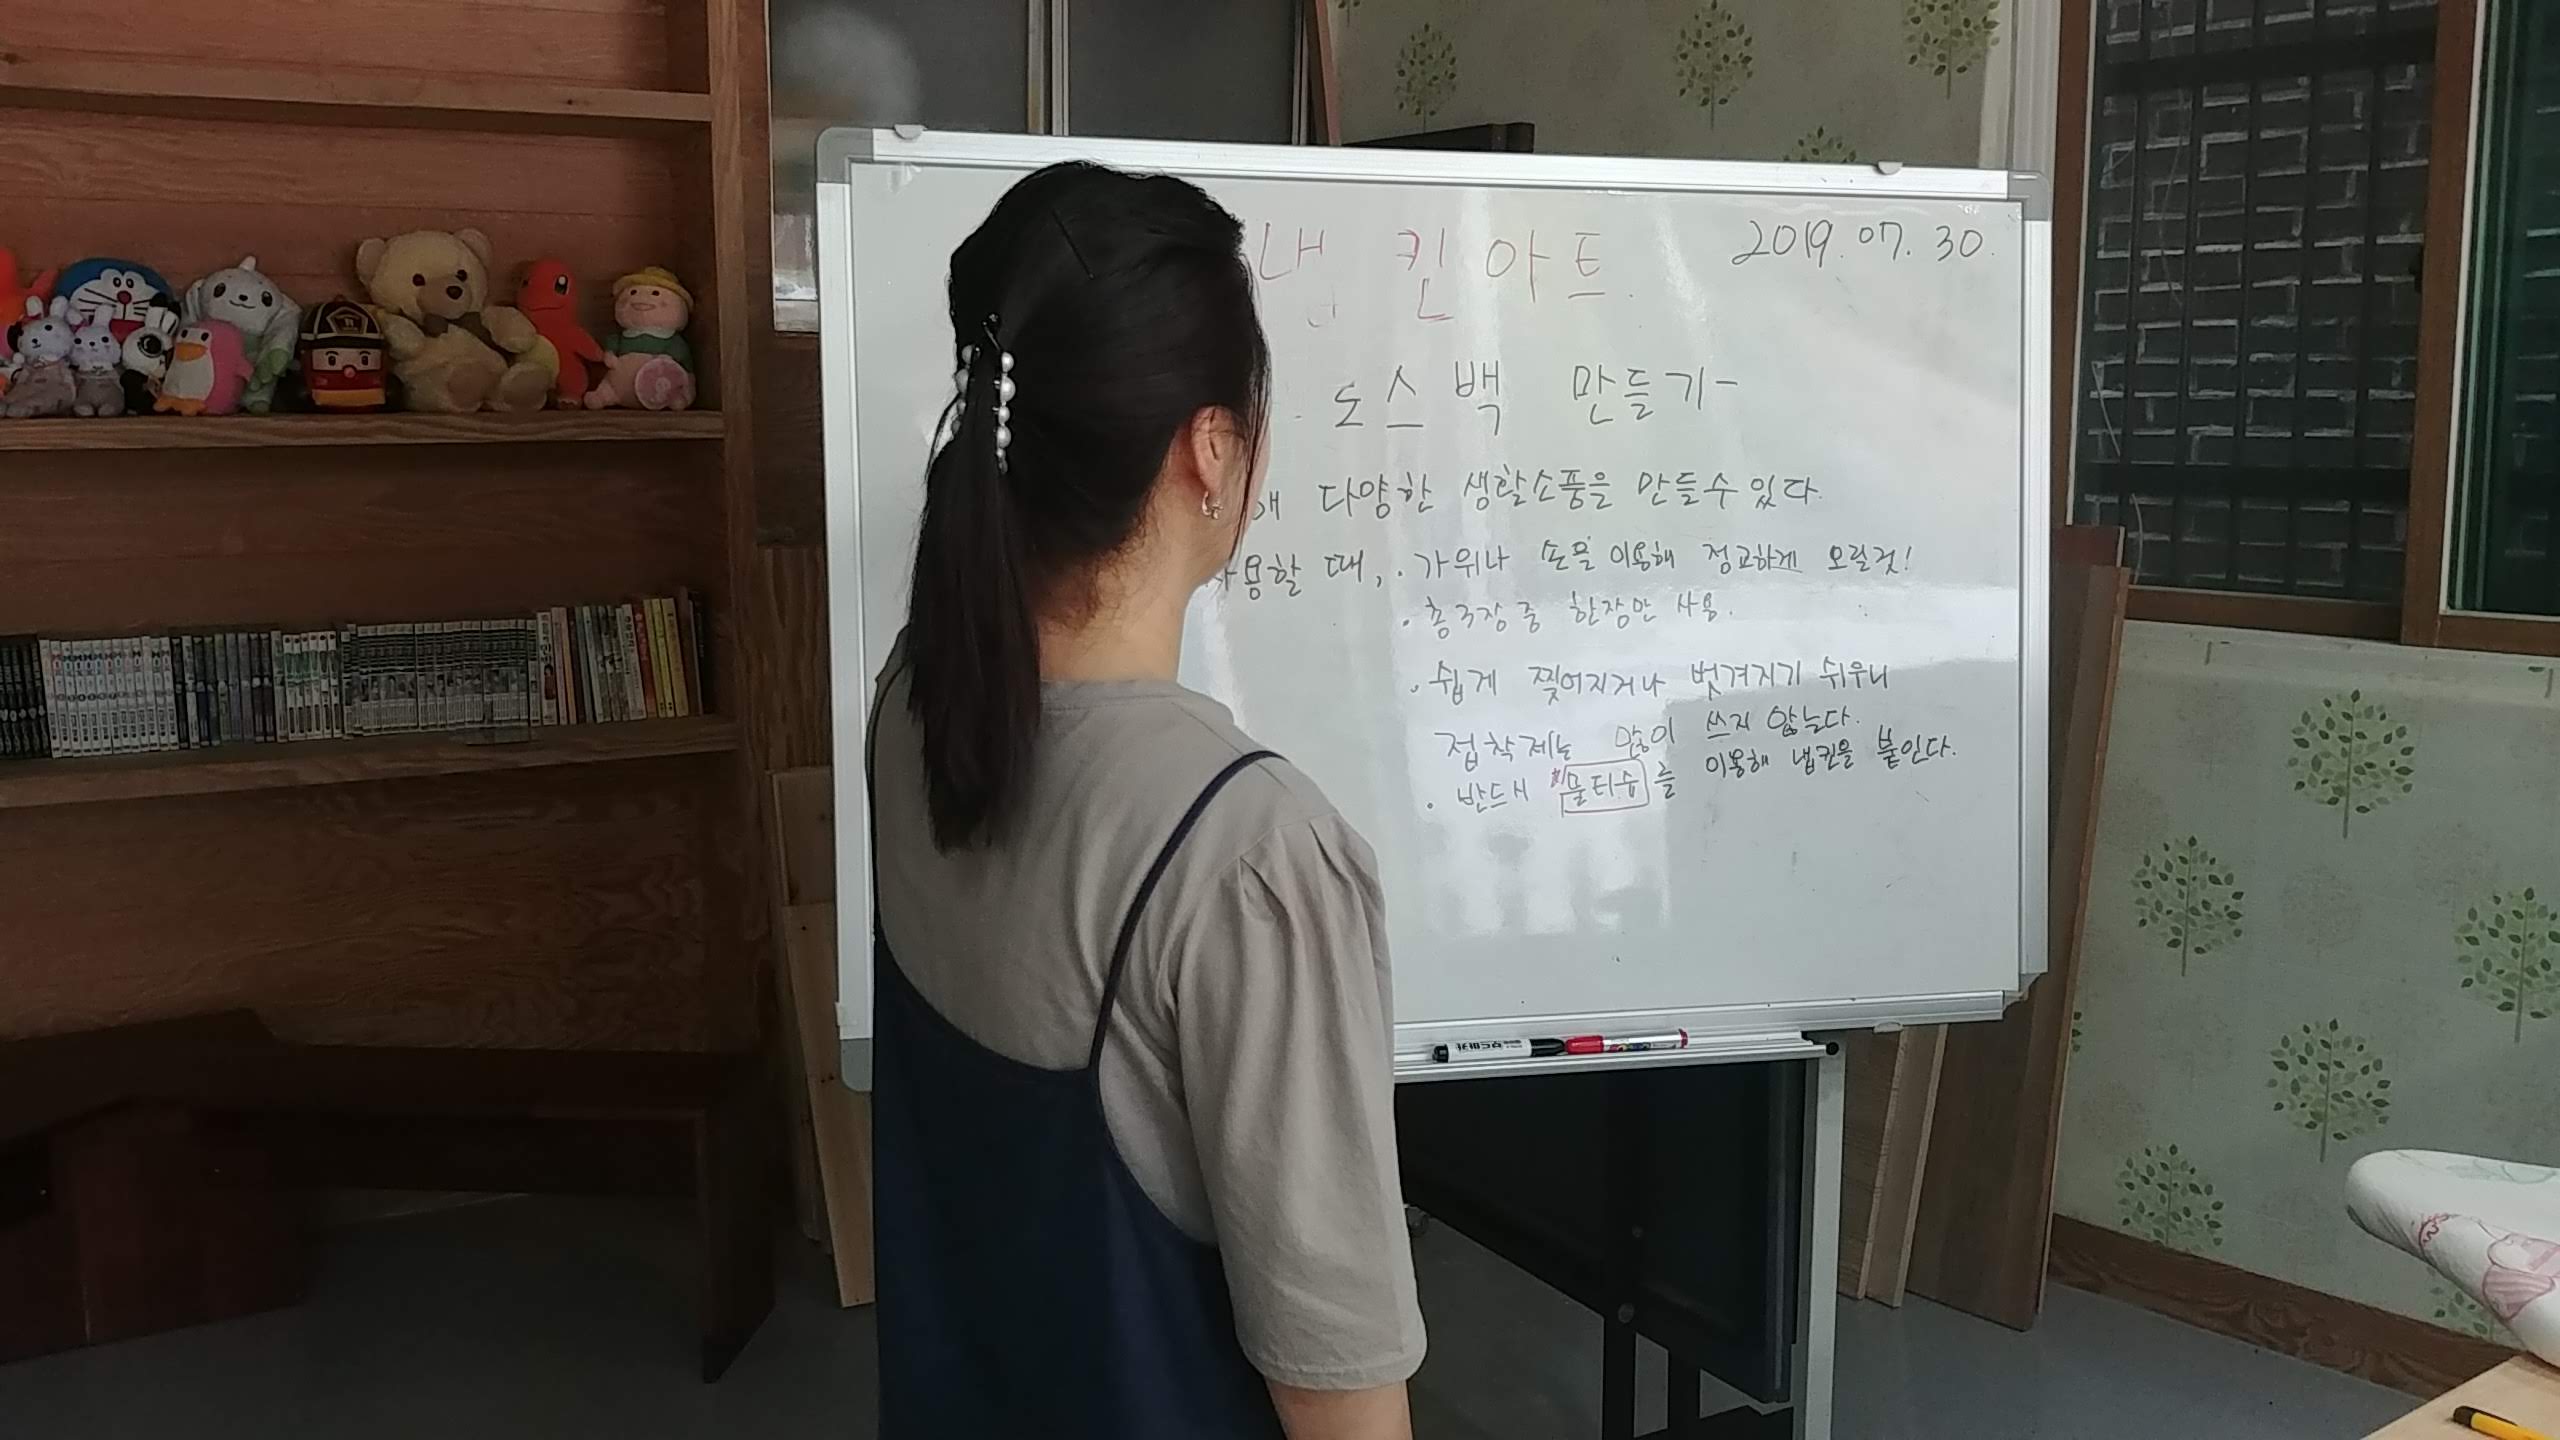 냅킨아트
2019. 07. 30.
도스백 만들기-
다양한 생활소품을 만들수있다.
사용할 때, · 가위나 손을 이용해 정교하게 오릴것!
· 총 3장 중 한장만 사용.
· 쉽게 찢어지거나 벗겨지기 쉬우니
접착제는 많이 쓰지 않는다.
· 반드시 물티슈를 이용해 냅킨을 붙인다.